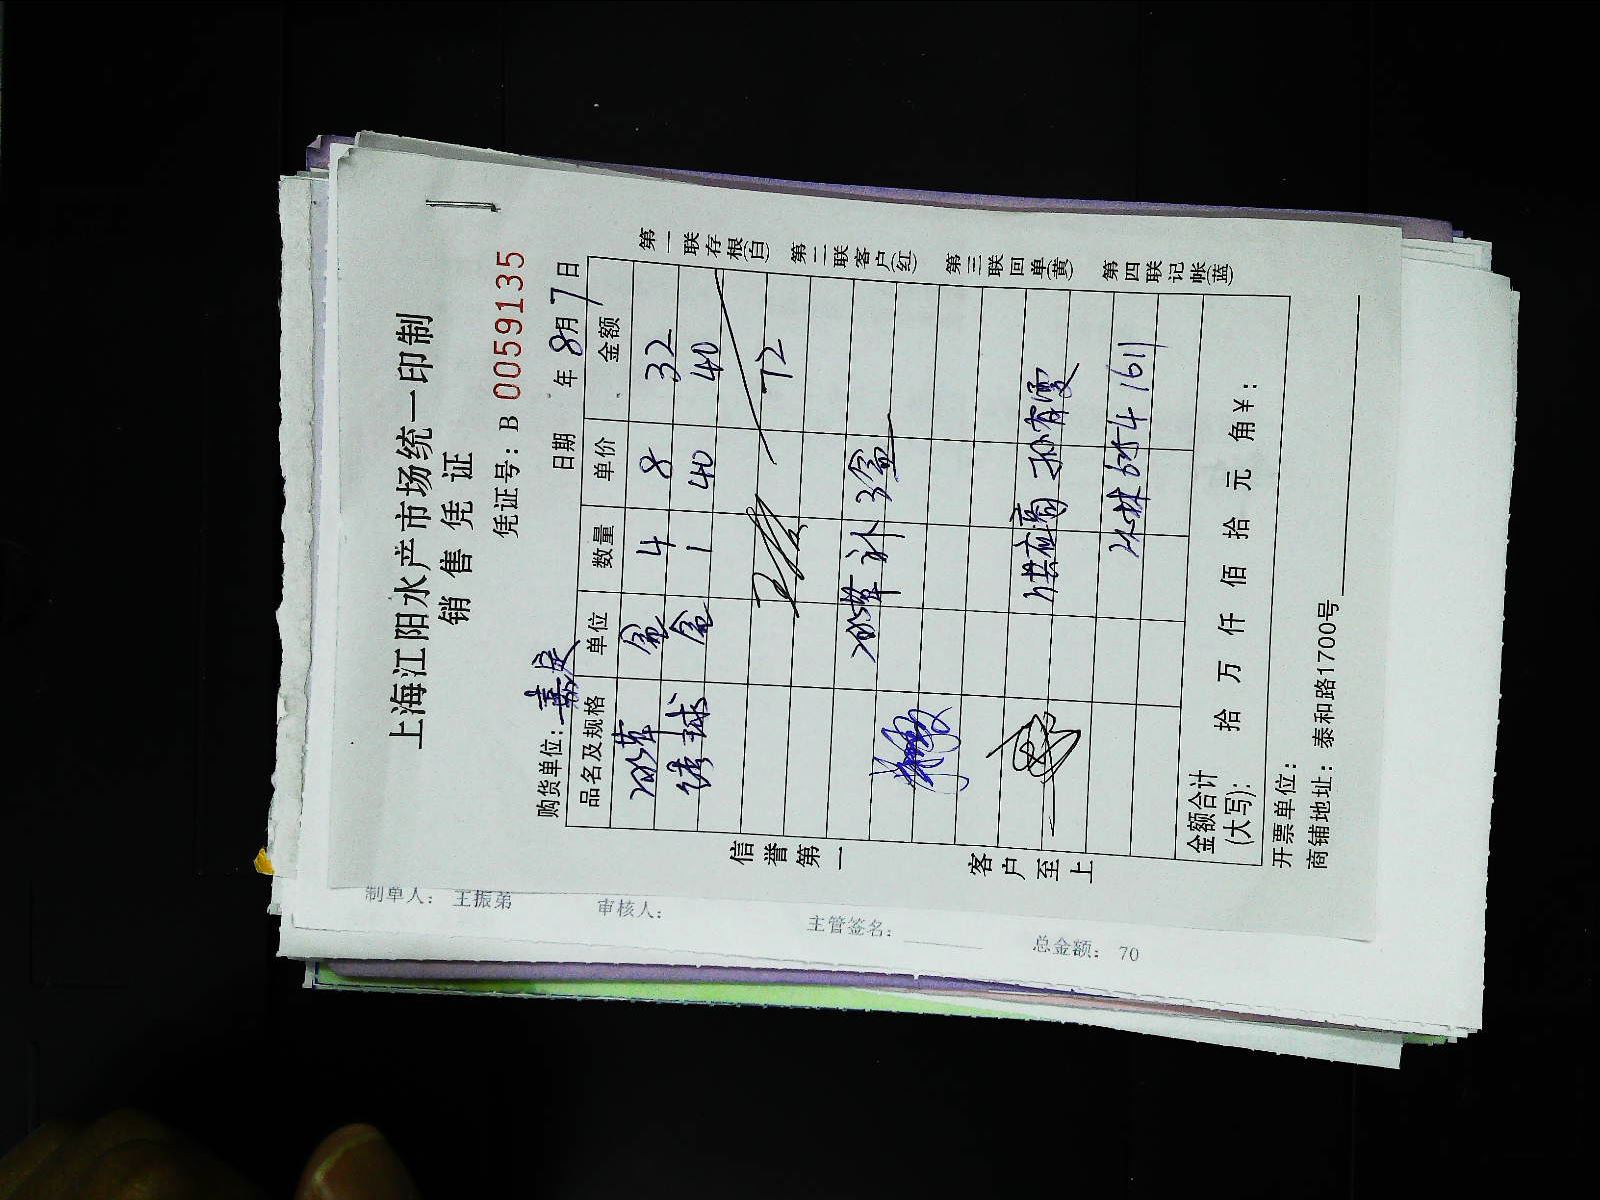 上海江阳水产市场统一印制
销售凭证
凭证号：B 0059135
购货单位：嘉定 日期 年8月7日
品名及规格 单位 数量 单价 金额
盒 4 8 32
绣球 盒 1 40 40
72
补 3盒
供应商 孙有雯
654 1611
金额合计
(大写)： 拾 万 仟 佰 拾 元 角￥：
开票单位：
商铺地址：泰和路1700号
信誉第一
客户至上
第一联存根(白)
第二联客户(红)
第三联回单(黄)
第四联记帐(蓝)
制单人： 王振弟 审核人： 主管签名： 总金额： 70